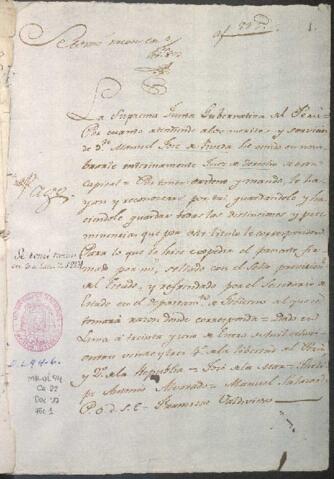 1.
La Suprema Junta Gubernativa del Perú=
Por cuanto atendiendo a los meritos y servicios
de Dn. Manuel José de he venido en nom-
brarle interinamente Juez de derecho de esta
capital= Por tanto ordeno y mando, le ha-
yan y reconozcan por tal guardandole y ha-
ciendole guardar todas las distinciones y pree-
minencias que por este titulo le corresponden
Para lo que le hice expedir el presente fir-
mado por mi, sellado con el sello provisional
del Estado, y refrendado por el Secretario de
Estado en el departamto. de Gobierno al que se
tomará razon donde corresponda= Dado en
Lima á treinta y uno de Enero de mil ochoci-
entos veinte y tres 4º. de la libertad del Perú
y 2º. de la Republica= José de la Mar= Felipe
Antonio Alvarado= Manuel Salazar=
P. O. d. S. E= Francisco Valdivieso
O.L. 94-6
MH-OL 94
Doc 10
Fol 1